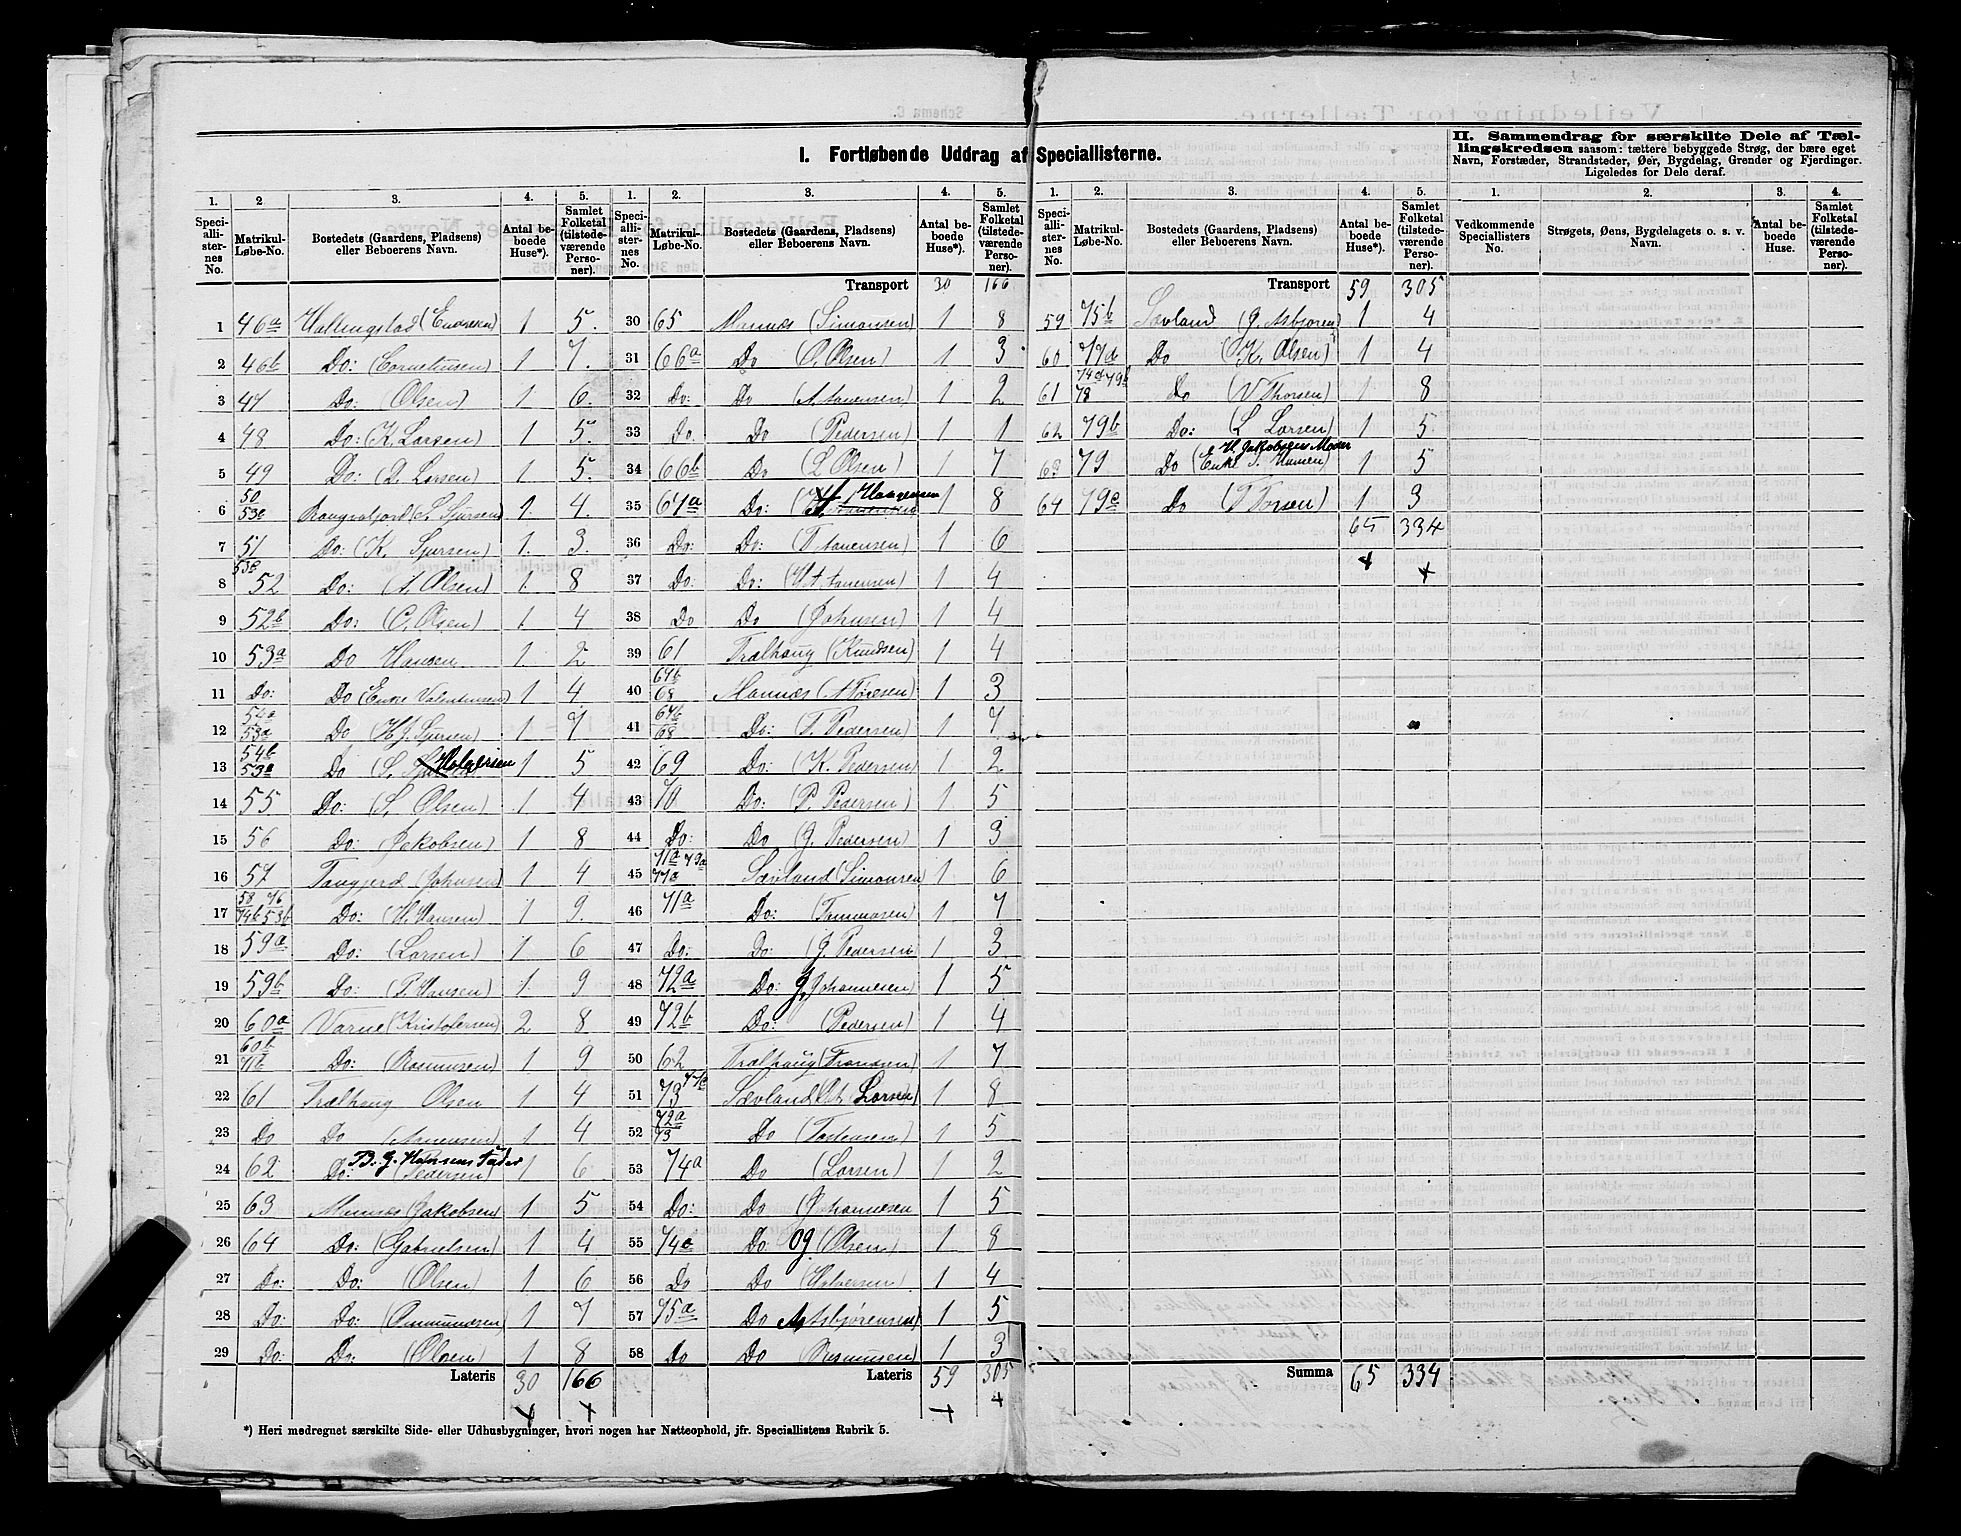 I. Fortløbende Uddrag af Speciallisterne.
II. Sammendrag for særskilte Dele af Tællingskredsen saasom: tættere bebyggede Strøg, der bære eget Navn, Forstæder, Strandsteder, Øer, Bygdelag, Grender og Fjerdinger. Ligeledes for Dele deraf.
1. 2 3. 4. 5. 1. 2. 3. 4. 5. 1. 2. 3. 4. 5. 1. 2. 3. 4.
Speciallisternes No. Matrikul-Løbe-No. Bostedets (Gaardens, Pladsens) eller Beboerens Navn. Antal beboede Huse*). Samlet Folketal (tilstedeværende Personer).
Speciallisternes No. Matrikul-Løbe-No. Bostedets (Gaardens, Pladsens) eller Beboerens Navn. Antal beboede Huse*). Samlet Folketal (tilstedeværende Personer).
Speciallisternes No. Matrikul-Løbe-No. Bostedets (Gaardens, Pladsens) eller Beboerens Navn. Antal beboede Huse*). Samlet Folketal (tilstedeværende Personer).
Vedkommende Speciallisters No. Strøgets, Øens, Bygdelagets o. s. v. Navn. Antal beboede Huse. Samlet Folketal (tilstedeværende Personer).
1 46a Hallingstad (Endresen) 1 5.
2 46b Do: (Corneliusen) 1 7.
3 47 Do: (Olsen) 1 6.
4 48 Do: (K. Larsen) 1 5.
5 49 Do: (D. Larsen) 1 5.
6 50 53c (L. Sjursen) 1. 4.
7 51 Do: (K. Sjursen) 1. 3.
8 52 Do: (A. Olsen) 1. 8
9 52b Do: (C. Olsen) 1 4
10 53a Do Hansen 1 2
11 Do: Do (Enke Valentinsen) 1 4
12 54a 53a Do (H J. Sjursen) 1 7
13 54b Do (S. Holgersen 1 5
14 55 Do: (S. Olsen) 1 4
15 56 Do: (Jakobsen) 1 8
16 57 (Johnsen) 1 4
17 58 76 74b 53b Do: (H. Hansen) 1 9.
18 59a Do: (Larsen) 1 6
19 59b Do: (P. Hansen) 1. 9
20 60a Varne (Kristofersen) 2 8
21 60b 71b Do: (Rasmussen) 1 9
22 61 Trælhaug Olsen 1 4
23 Do Do (Aanensen) 1 4
24 62 Do: (Pedersen) 1 6
25 63 Mannes (Jakobsen) 1 5
26 64 Do: (Gabrielsen) 1 4
27 Do: Do: (Olsen) 1 6
28 Do: Do: (Ommundsen) 1 7
29 Do: Do: (Olsen) 1 8
Lateris 30 166
Transport 30 166
30 65 Mannes (Simonsen) 1 8
31 66a Do (O. Olsen) 1 3
32 Do: Do (A. Aanensen) 1 2
33 Do. Do (Pedersen) 1 1
34 66b Do (L Olsen) 1 7
35 67a Do: 1 8
36 Do: Do: (T. Aanensen) 1 6
37 Do: Do: (H A. Aanensen) 1 4
38 Do Do (Johnsen) 1 4
39 61 Trælhaug (Knudsen) 1 4
40 67b 68 Mannes (A Toresen) 1 3
41 67b 68 Do: (T. Pedersen) 1 7
42 69 Do: (K. Pedersen) 1 2
43 70 Do: (P. Pedersen) 1 5
44 Do: Do (J. Pedersen) 1 3
45 71a 79a Sævland (Simonsen) 1 6
46 71a Do: (Tommasen) 1 7
47 Do: Do: (J. Pedersen 1 3
48 72a Do: J. Johannesen) 1 5
49 72b Do: (Pedersen) 1 4
50 62 Trælhaug (Fransen) 1 7
51 73 77c Sævland (A Larsen) 1 8
52 72a 73 Do (Tostensen) 1 5
53 74a Do (Larsen) 1 2
54 Do: Do (Johannesen 1 5
55 74c Do: Og (Olsen) 1 8
56 Do Do (Halversen) 1 4
57 75a Do A. Asbjørensen) 1 5
58 Do Do (Rasmussen) 1 3
Lateris 59 305
Transport 59 305
59 75b Sævland (J. Asbjoren) 1 4
60 77d Do (K. Olsen) 1 4
61 74d 79b 78 Do (V Thorsen) 1 8
62 79b Do: (L Larsen) 1 5.
H. Jakobsens Moder
63 79 Do (Enke S. Hansen) 1 5
64 79c Do (T Torsen) 1 3
65 334
Summa 65 334
*) Heri medregnet særskilte Side- eller Udhusbygninger, hvori nogen har Natteophold, jfr. Speciallistens Rubrik 5.